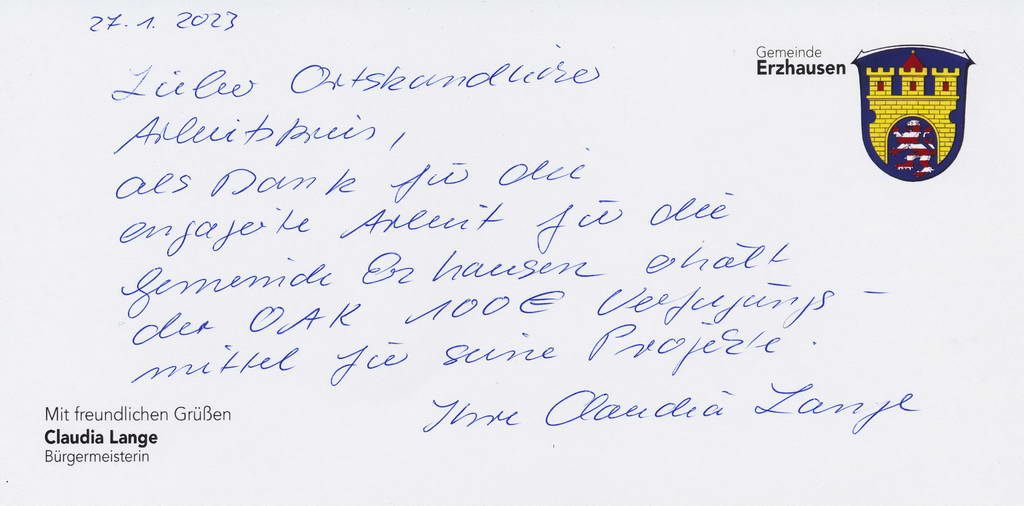 27.1.2023
Gemeinde
Erzhausen
Lieber Ortskundlicher
Arbeitskreis,
als Dank für die
engagierte Arbeit für die
Gemeinde Erzhausen erhält
der OAK 100 € Verfügungs-
mittel für seine Projekte.
Ihre Claudia Lange
Mit freundlichen Grüßen
Claudia Lange
Bürgermeisterin